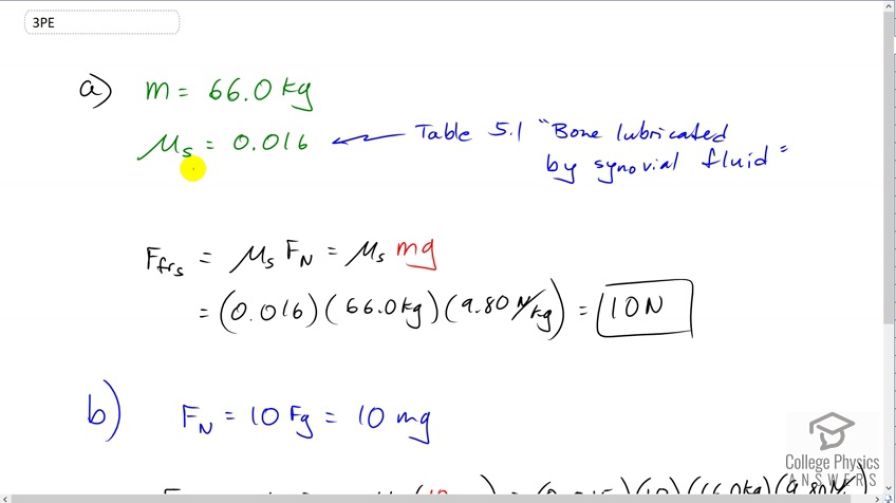 3PE
a) m = 66.0 kg
μs = 0.016 ← Table 5.1 "Bone lubricated
by synovial fluid"
Ffrs = μs FN = μs mg
= (0.016)(66.0kg)(9.80 N/kg) = 10N
b) FN = 10 Fg = 10 mg
College Physics
ANSWERS